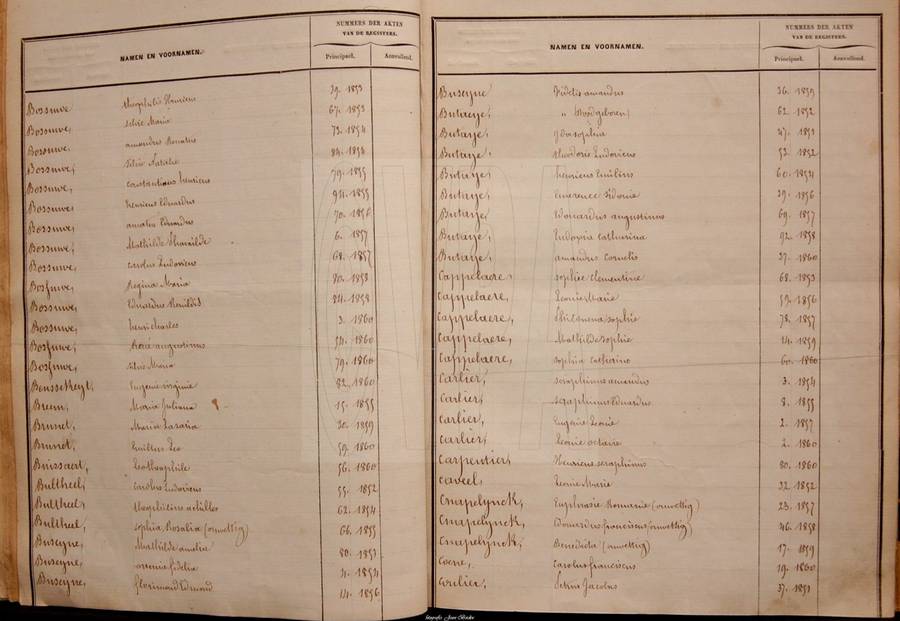 NAMEN EN VOORNAMEN.
NUMMERS DER AKTEN
VAN DE REGISTERS.
Principael. Aenvullend.
Bossuwe Theophilis Henricus 39. 1853
Bossuwe, Silvie Maria 67. 1853
Bossuwe, amandus Renatus 73. 1854
Bossuwe, Silvie Natalie 84. 1854
Bossuwe, constantinus henricus 79. 1855
Bossuwe, henricus Eduardus 94. 1855
Bossuwe, amatus Eduardus 70. 1856
Bossuwe, Mathilde Pharaïlde 6. 1857
Bossuwe, carolus Ludovicus 68. 1857
Bossuwe, Regina Maria 80. 1858
Bossuwe, Eduardus 84. 1858
Bossuwe, henri charles 3. 1860
Bossuwe, René augustinus 54. 1860
Bossuwe, Silvie Maria 79. 1860
Eugenie virginie 82. 1860
Breem, Maria Juliana 15. 1855
Brunet, Maria 20. 1859
Brunet, Emilius Leo 59. 1860
Buissaert, Leo theophile 56. 1860
Bultheel, carolus Ludovicus 55. 1852
Bultheel, Theophilus achilles 62. 1854
Bultheel, Sophia Rosalia (onwettig) 66. 1855
Buseyne, Mathilde amelia 80. 1853
Buseyne, fidelia 4. 1854
Buseyne, florimond Edmond 14. 1856
NAMEN EN VOORNAMEN.
NUMMERS DER AKTEN
VAN DE REGISTERS.
Principael. Aenvullend.
Buseyne fidelis amandus 36. 1859
Butaye, " (Doodgeboren) 62. 1852
Butaye, Ida sophia 47. 1851
Butaye, theodoris Ludovicus 52. 1852
Butaye, henricus Emilius 60. 1854
Butaye, Emerence sidonie 29. 1856
Butaye, augustinus 69. 1857
Butaye, Ludovia catharina 92. 1858
Butaye, amandus cornelis 27. 1860
Cappelaere, sophie clementine 68. 1853
Cappelaere, Leonie Marie 59. 1856
Cappelaere, Philomena sophie 78. 1857
Cappelaere, Mathilde sophie 14. 1859
Cappelaere, sophia catharina 60. 1860
Carlier, seraphinus amandus 3. 1854
Carlier, seraphinus Eduardus 8. 1855
Carlier, Eugenie Leonie 2. 1857
Carlier, Leonie octavie 2. 1860
Carpentier, Henricus seraphinus 80. 1860
Caveel, Leonie Marie 32. 1852
Cnapelynck, Euphrasie Romanie (onwettig) 23. 1857
Cnapelynck, Edouardus franciscus (onwettig) 46. 1858
Cnapelynck, Benedicta (onwettig) 17. 1859
Coene, Carolus franciscus 19. 1860
Corlier, Petrus Jacobus 37. 1851